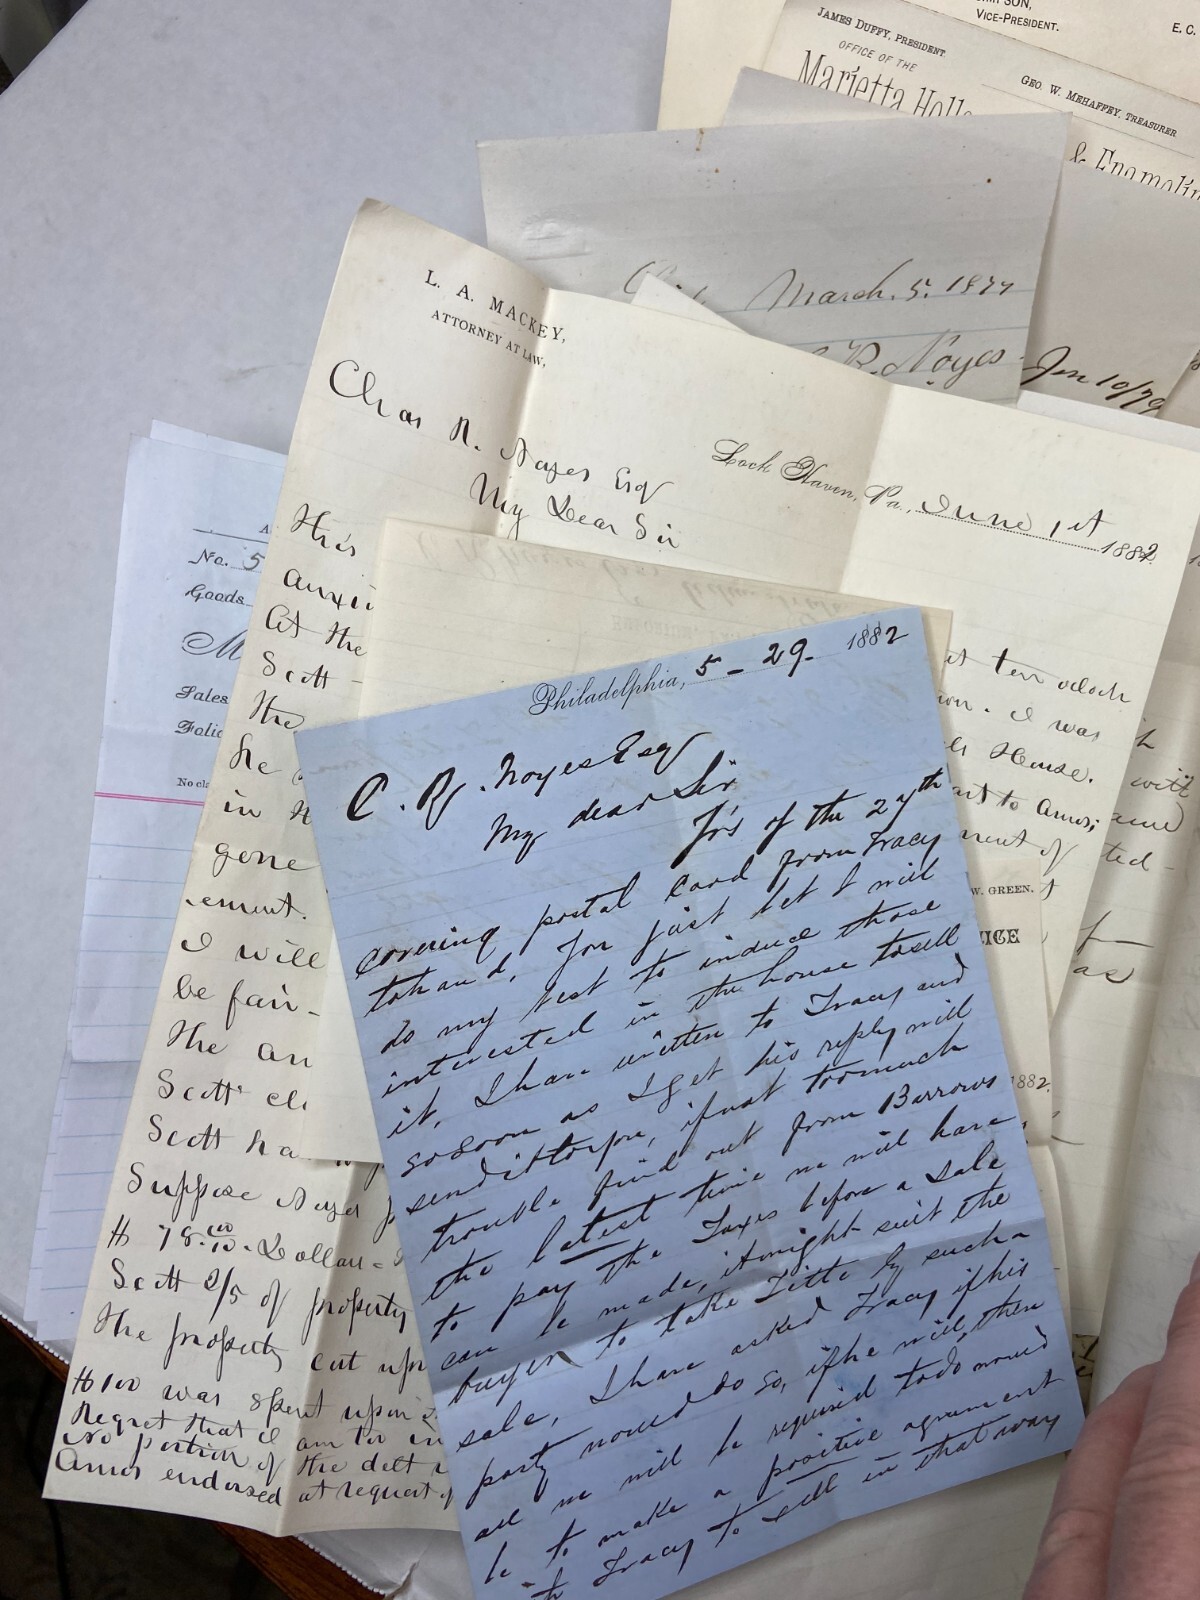 SON,
VICE-PRESIDENT.
E. C.
JAMES DUFFY, PRESIDENT.
OFFICE OF THE
GEO. W. MEHAFFEY, TREASURER
Marietta Hollo
& Enameling
March. 5. 1877
C R. Noyes
Jan 10/79
L. A. MACKEY,
ATTORNEY AT LAW,
Lock Haven, Pa., June 1st 1882
Chas R. Noyes Esq
My Dear Sir
This
at ten oclock
At the
I was
Scott
House.
the
to Amos;
he
ment of
in
gone
ement.
I will
be fair
the an
Scotts cl
Scott ha
Suppose Noyes
78.00 Dollars
Scott 2/5 of property
the property cut upon
$100 was spent upon
Regret that I am too
No portion of the debt
Amos endorsed at request of
No. 5
Goods
M
Sales
Folio
No cla
W. GREEN.
ICE
1882.
with
ted
as
Philadelphia, 5 - 29. 1882
C. R. Noyes Esq
My dear Sir
Yrs of the 27th
covering postal card from Tracy
to hand, you just bet I will
do my best to induce those
interested in the house to sell
it, I have written to Tracy and
so soon as I get his reply will
send it to you, if not too much
trouble find out from Barrows
the latest time we will have
to pay the Taxes before a sale
can be made, it might suit the
buyer to take Title by such a
sale, I have asked Tracy if his
party would do so, if he will, then
all we will be required to do would
be to make a positive agreement
to Tracy to sell in that way